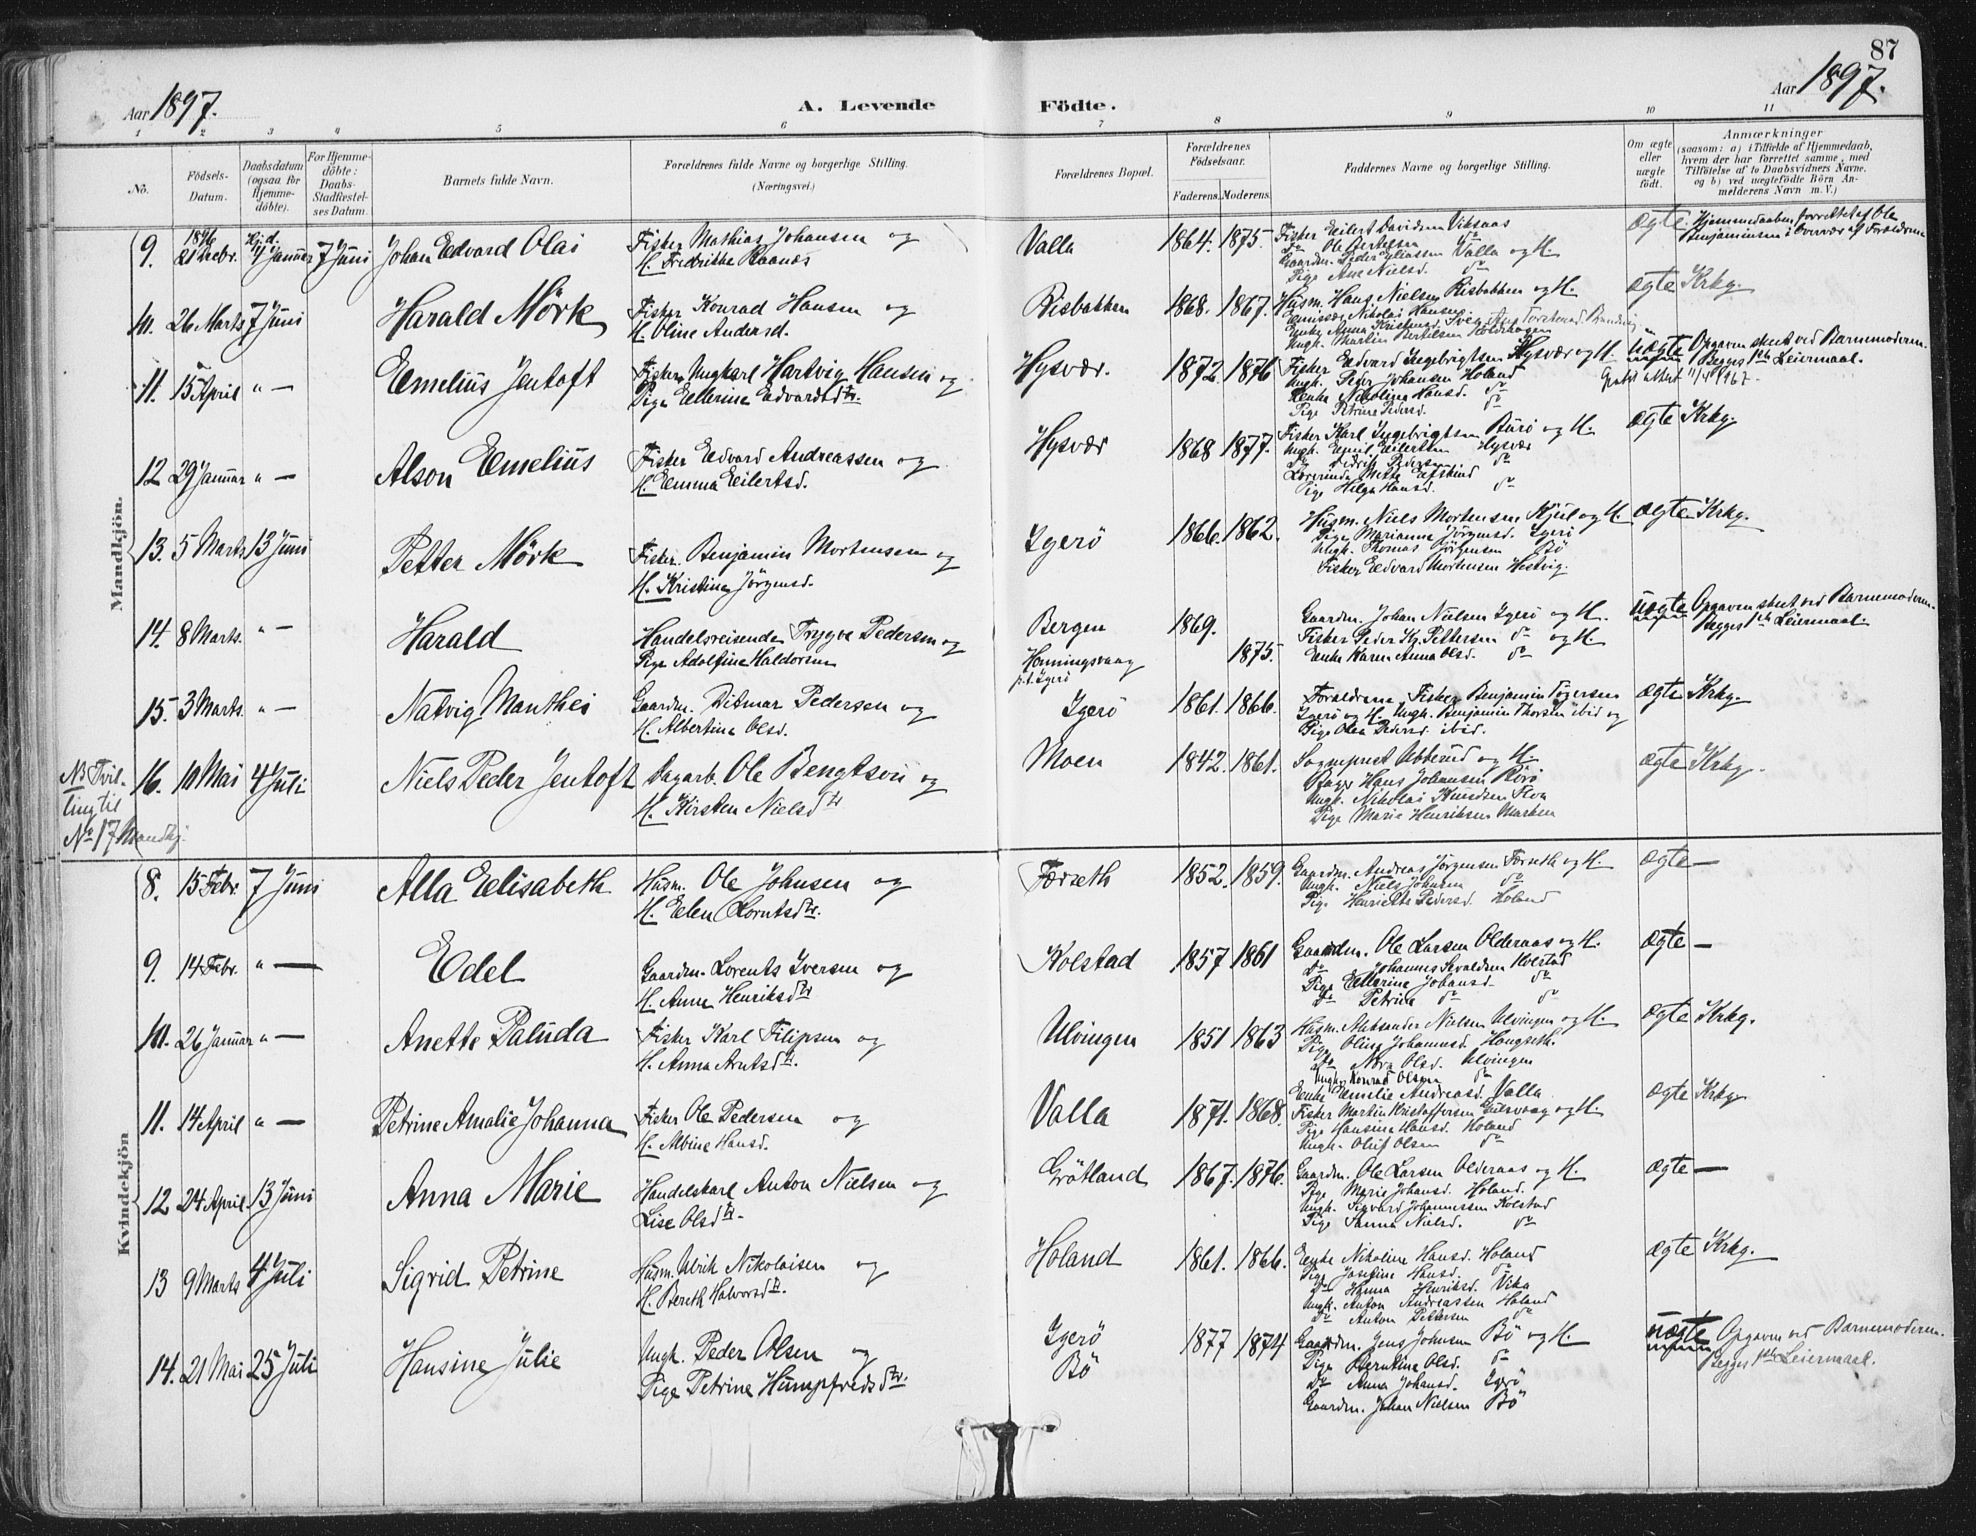 87
Aar 1897.
A. Levende Födte.
Aar 1897.
1 2 3 4 5 6 7 8 9 10 11
No.
Födsels-Datum.
Daabsdatum (ogsaa for Hjemme-döbte).
For Hjemme-döbte: Daabs-Stadfæstel-ses Datum.
Barnets fulde Navn.
Forældrenes fulde Navne og borgerlige Stilling.
(Næringsvei.)
Forældrenes Bopæl.
Forældrenes Födselsaar.
Faderens. Moderens.
Faddernes Navne og borgerlige Stilling.
Om ægte eller uægte födt.
Anmærkninger
(saasom: a) i Tilfælde af Hjemmedaab, hvem der har forrettet samme, med Tilföielse af to Daabsvidners Navne. og b) ved uægtefödte Börn An-melderens Navn m. V.)
Mandkjön.
9. 1896 21 Decbr. Hj.d. 1/1 Januar 7 Juni Johan Edvard Olai Fisker Mathias Johansen og
H. Fredrikke Raanæs
Valla 1864. 1875. Fisker Eilert Davidsen Viksaas
Do Ole Bertelsen do
Gaardm. Peder Eliassen Valla og H.
Pige Ane Nielsd. do
ægte Hjemmedaaben forrettet af Ole
Benjaminsen i Overvær af Forældrene
10. 26 Marts 7 Juni Harald Mörk Fisker Konrad Hansen og
H. Oline Andersd.
Risbakken 1868. 1867. Husm. Hans Nielsen Risbakken og H.
Nikolai Hansen
Enke Anna Kristensd.
Ungk. Martin Bertelsen
ægte Krkg.
11. 15 April " — Emelius Jentoft Fisker, Ungkarl Hartvig Hansen og
Pige Ellerine Edvardsdtr.
Hysvær. 1872. 1876 Fisker Edvard Ingebrigtsen Hysvær og H.
Ungk. Peder Johansen Holand
Enke Nikolina Hansd. do
Pige Petrine Pedersd. do
uægte Opgaven skeet ved Barnemoderen.
Begges 1ste Leiermaal.
12 29 Januar " — Alson Emelius Fisker Edvard Andreassen og
H. Emma Eilertsd.
Hysvær 1868 1877. Fisker Karl Ingebrigtsen Burö og H.
Ungk. Emil Eilertsen Hysvær
Do Didrik Pedersen do
Lærerinde Mette Eftskind
Pige Helga Hansd. do
ægte Krkg.
13. 5 Marts 13 Juni Petter Mörk Fisker Benjamin Mortensen og
H. Kristine Jörgensd.
Igerö 1866. 1862. Husm. Niels Mortensen Kjul og H.
Pige Marianna Jörgensd. Igerö
Ungk. Thomas Jörgensen Bö
Fisker Edvard Mortensen Hestvig.
ægte Krkg.
14. 8 Marts. " — Harald Handelsreisende Trygve Pedersen og
Pige Adolfine Haldorsen
Bergen 1869.
Honningsvaag 1875.
p.t. Igerö
Gaardm. Johan Nielsen Igerö og H.
Fisker Peder Kr. Pettersen do og H.
Enke Karen Anna Olsd. do
uægte Opgaven skeet ved Barnemoderen.
Begges 1ste Leiermaal.
15. 3 Marts. " — Natvig Manthei Gaardm. Ditmar Pedersen og
H. Albertina Olsd.
Igerö 1861. 1866. Forældrene, Fisker Benjamin Tögersen
Igerö og H. Ungk. Benjamin Thorsen ibid og
Pige Olea Pedersd. ibid.
ægte Krkg.
NB Tvil-
ling til
No 17 Mandkj.
16. 10 Mai 4 Juli Niels Peder Jentoft Dagarb. Ole Bengtson og
H. Kirsten Nielsdtr
Moen 1842. 1861. Sogneprest Abberud og H.
Bager Hans Johansen Rörö
Ungk. Nikolai Knudsen Flua
Pige Marie Henriksen Marken
ægte Krkg.
Kvindekjön
8. 15 Febr. 7 Juni Alla Elisabeth Husm. Ole Johnsen og
H. Elen Lorntsdtr.
Forseth 1852. 1859. Gaardm. Andreas Jörgensen Forseth og H.
Ungk. Niels Johnsen do
Pige Henriette Pedersd. Holand
ægte —
9. 14 Febr. " — Edel Gaardm. Lorents Iversen og
H. Anna Henriksdtr
Kolstad 1857. 1861 Gaardm. Ole Larsen Olderaas og H.
Do Johannes Sivaldsen Kolstad
Pige Ellerine Johansd. do
Do Petrine do do
ægte —
10. 26 Januar " — Anette Paluda Fisker Karl Filipsen og
H. Anna Arntsdtr.
Ulvingen 1851 1863 Husm. Aleksander Nielsen Ulvingen og H.
Pige Oline Johannesd. Haugseth.
Do Nora Olsd. Ulvingen
Ungk. Konrad Olsen do
ægte Krkg.
11. 14 April " — Petrine Amalie Johanna Fisker Ole Pedersen og
H. Albine Hansd.
Valla 1871. 1868. Enke Emelie Andreasd. Valla
Fisker Martin Kristoffersen Gulsvaag og H.
Pige Hansina Hansd. Holand
Ungk. Oluf Olsen do
ægte Krkg.
12 24 April 13 Juni Anna Marie Handelskarl Anton Nielsen og
Lise Olsdtr.
Grötland 1867. 1876. Gaardm. Ole Larsen Olderaas og H.
Pige Marie Johansd. Holand.
Ungk. Sigvard Johannessen Kolstad
Pige Sanna Nielsd. do
ægte —
13 9 Marts 4 Juli Sigrid Petrine Husm. Ulrik Nikolaisen og
H. Bereth Halvorsdtr.
Holand 1861. 1866. Enke Nikoline Hansd. Holand
Pige Josefine Hansd. do
Do Hanna Henriksd. Vika
Ungk. Anton Andreassen Holand
Do Anton Pettersen do
ægte Krkg.
14. 21 Mai 25 Juli Hansine Julie Ungk. Peder Olsen og
Pige Petrine Humpfredsdtr.
Igerö
Bö
1877 1874 Gaardm. Jens Johnsen Bö og H.
Pige Berntine Olsd. do
Do Anna Johansd. Igerö
Gaardm. Johan Nielsen Bö
uægte Opgaven ved Barnemoderen.
Begges 1ste Leiermaal.